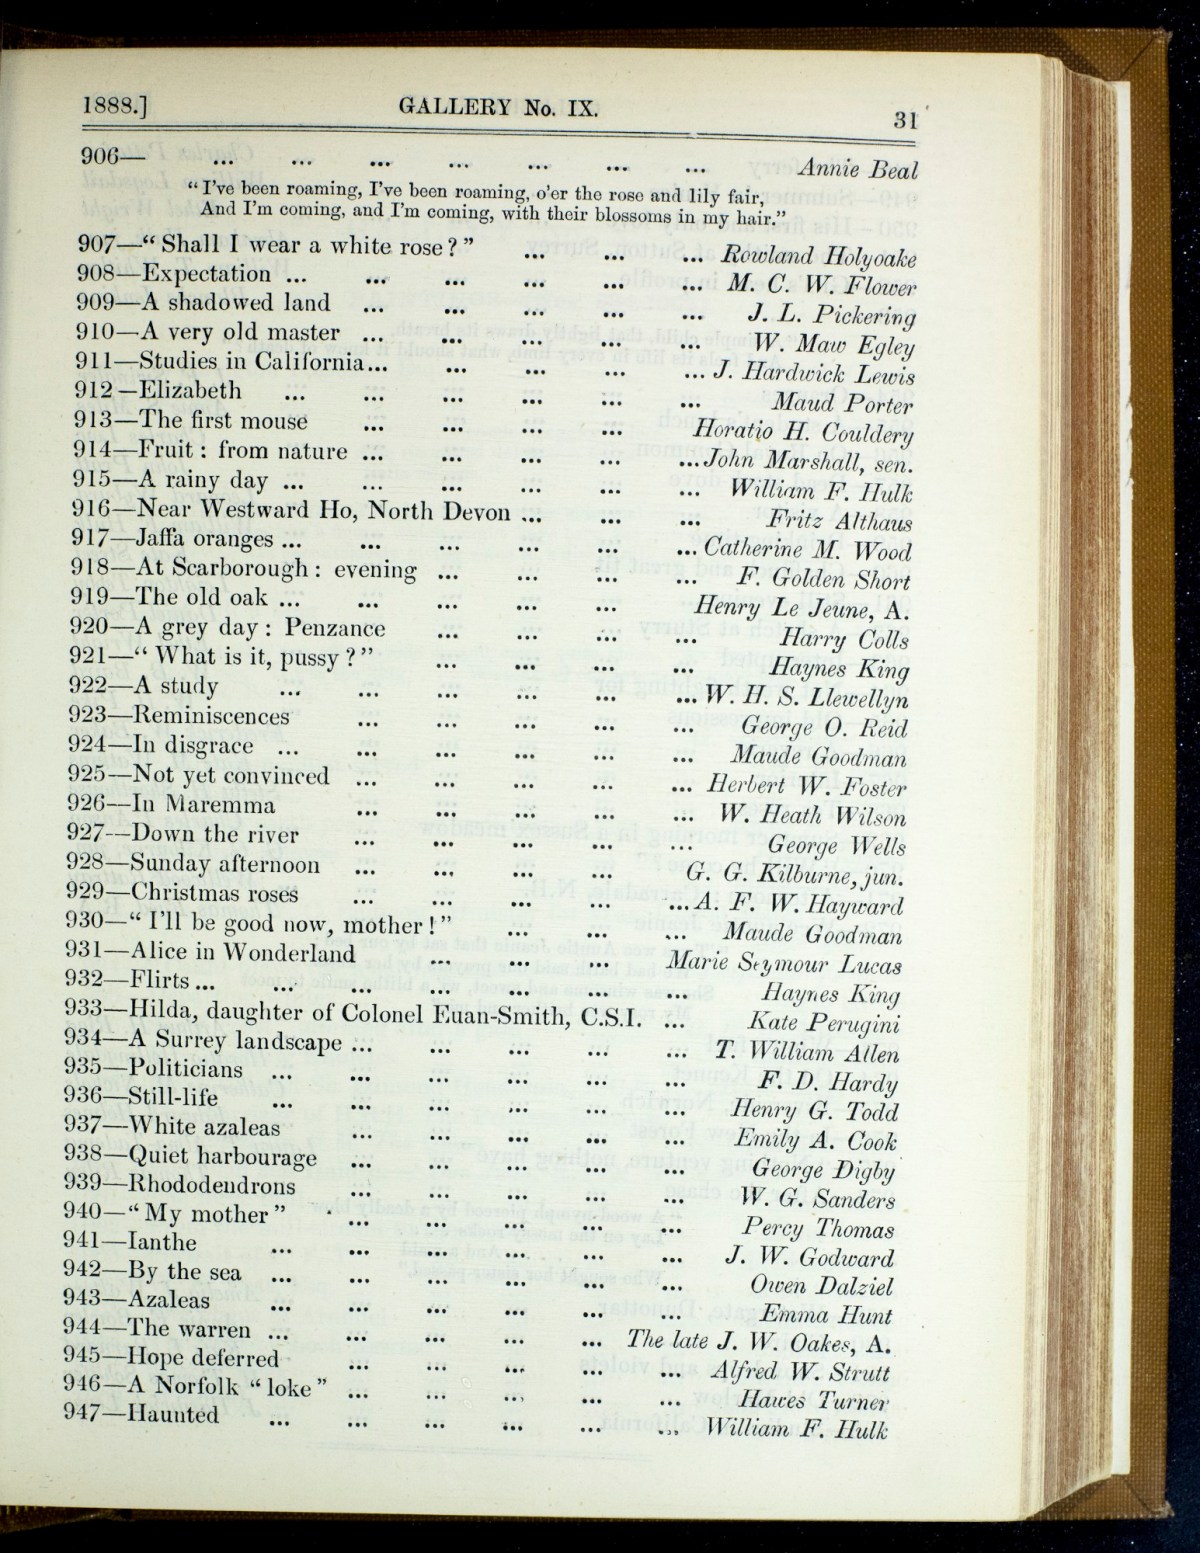 1888.] GALLERY No. IX. 31
906— ... ... ... ... ... ... ... Annie Beal
"I've been roaming, I've been roaming, o'er the rose and lily fair,
And I'm coming, and I'm coming, with their blossoms in my hair."
907—"Shall I wear a white rose?" ... ... ... Rowland Holyoake
908—Expectation ... ... ... ... ... ... M. C. W. Flower
909—A shadowed land ... ... ... ... ... J. L. Pickering
910—A very old master ... ... ... ... ... W. Maw Egley
911—Studies in California... ... ... ... ... J. Hardwick Lewis
912—Elizabeth ... ... ... ... ... ... Maud Porter
913—The first mouse ... ... ... ... Horatio H. Couldery
914—Fruit: from nature ... ... ... ... ... John Marshall, sen.
915—A rainy day ... ... ... ... ... ... William F. Hulk
916—Near Westward Ho, North Devon ... ... ... Fritz Althaus
917—Jaffa oranges ... ... ... ... ... ... Catherine M. Wood
918—At Scarborough: evening ... ... ... ... F. Golden Short
919—The old oak ... ... ... ... ... Henry Le Jeune, A.
920—A grey day: Penzance ... ... ... ... Harry Colls
921—"What is it, pussy?" ... ... ... ... Haynes King
922—A study ... ... ... ... ... ... W. H. S. Llewellyn
923—Reminiscences ... ... ... ... ... George O. Reid
924—In disgrace ... ... ... ... ... ... Maude Goodman
925—Not yet convinced ... ... ... ... ... Herbert W. Foster
926—In Maremma ... ... ... ... ... W. Heath Wilson
927—Down the river ... ... ... ... ... George Wells
928—Sunday afternoon ... ... ... ... G. G. Kilburne, jun.
929—Christmas roses ... ... ... ... ... A. F. W. Hayward
930—"I'll be good now, mother!" ... ... ... Maude Goodman
931—Alice in Wonderland ... ... ... Marie Seymour Lucas
932—Flirts ... ... ... ... ... ... ... Haynes King
933—Hilda, daughter of Colonel Euan-Smith, C.S.I. ... Kate Perugini
934—A Surrey landscape ... ... ... ... ... T. William Allen
935—Politicians ... ... ... ... ... ... F. D. Hardy
936—Still-life ... ... ... ... ... ... Henry G. Todd
937—White azaleas ... ... ... ... ... Emily A. Cook
938—Quiet harbourage ... ... ... ... ... George Digby
939—Rhododendrons ... ... ... ... ... W. G. Sanders
940—"My mother" ... ... ... ... ... Percy Thomas
941—Ianthe ... ... ... ... ... ... J. W. Godward
942—By the sea ... ... ... ... ... ... Owen Dalziel
943—Azaleas ... ... ... ... ... ... Emma Hunt
944—The warren ... ... ... ... ... The late J. W. Oakes, A.
945—Hope deferred ... ... ... ... ... Alfred W. Strutt
946—A Norfolk "loke" ... ... ... ... ... Hawes Turner
947—Haunted ... ... ... ... ... ... William F. Hulk